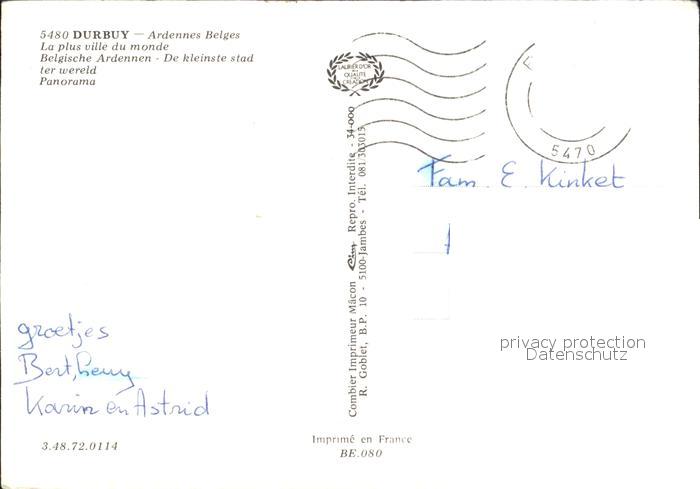 5480 DURBUY — Ardennes Belges
La plus ville du monde
Belgische Ardennen - De kleinste stad
ter wereld
Panorama
LAURIER D'OR
QUALITÉ
CREATION
5470
Fam. E. Kinket
Combier Imprimeur Mâcon Cim Repro. Interdite - 34-000
R. Goblet, B.P. 10 - 5100-Jambes - Tél. 081/303015
privacy protection
Datenschutz
groetjes
Bert,
Karin en Astrid
3.48.72.0114
Imprimé en France
BE.080